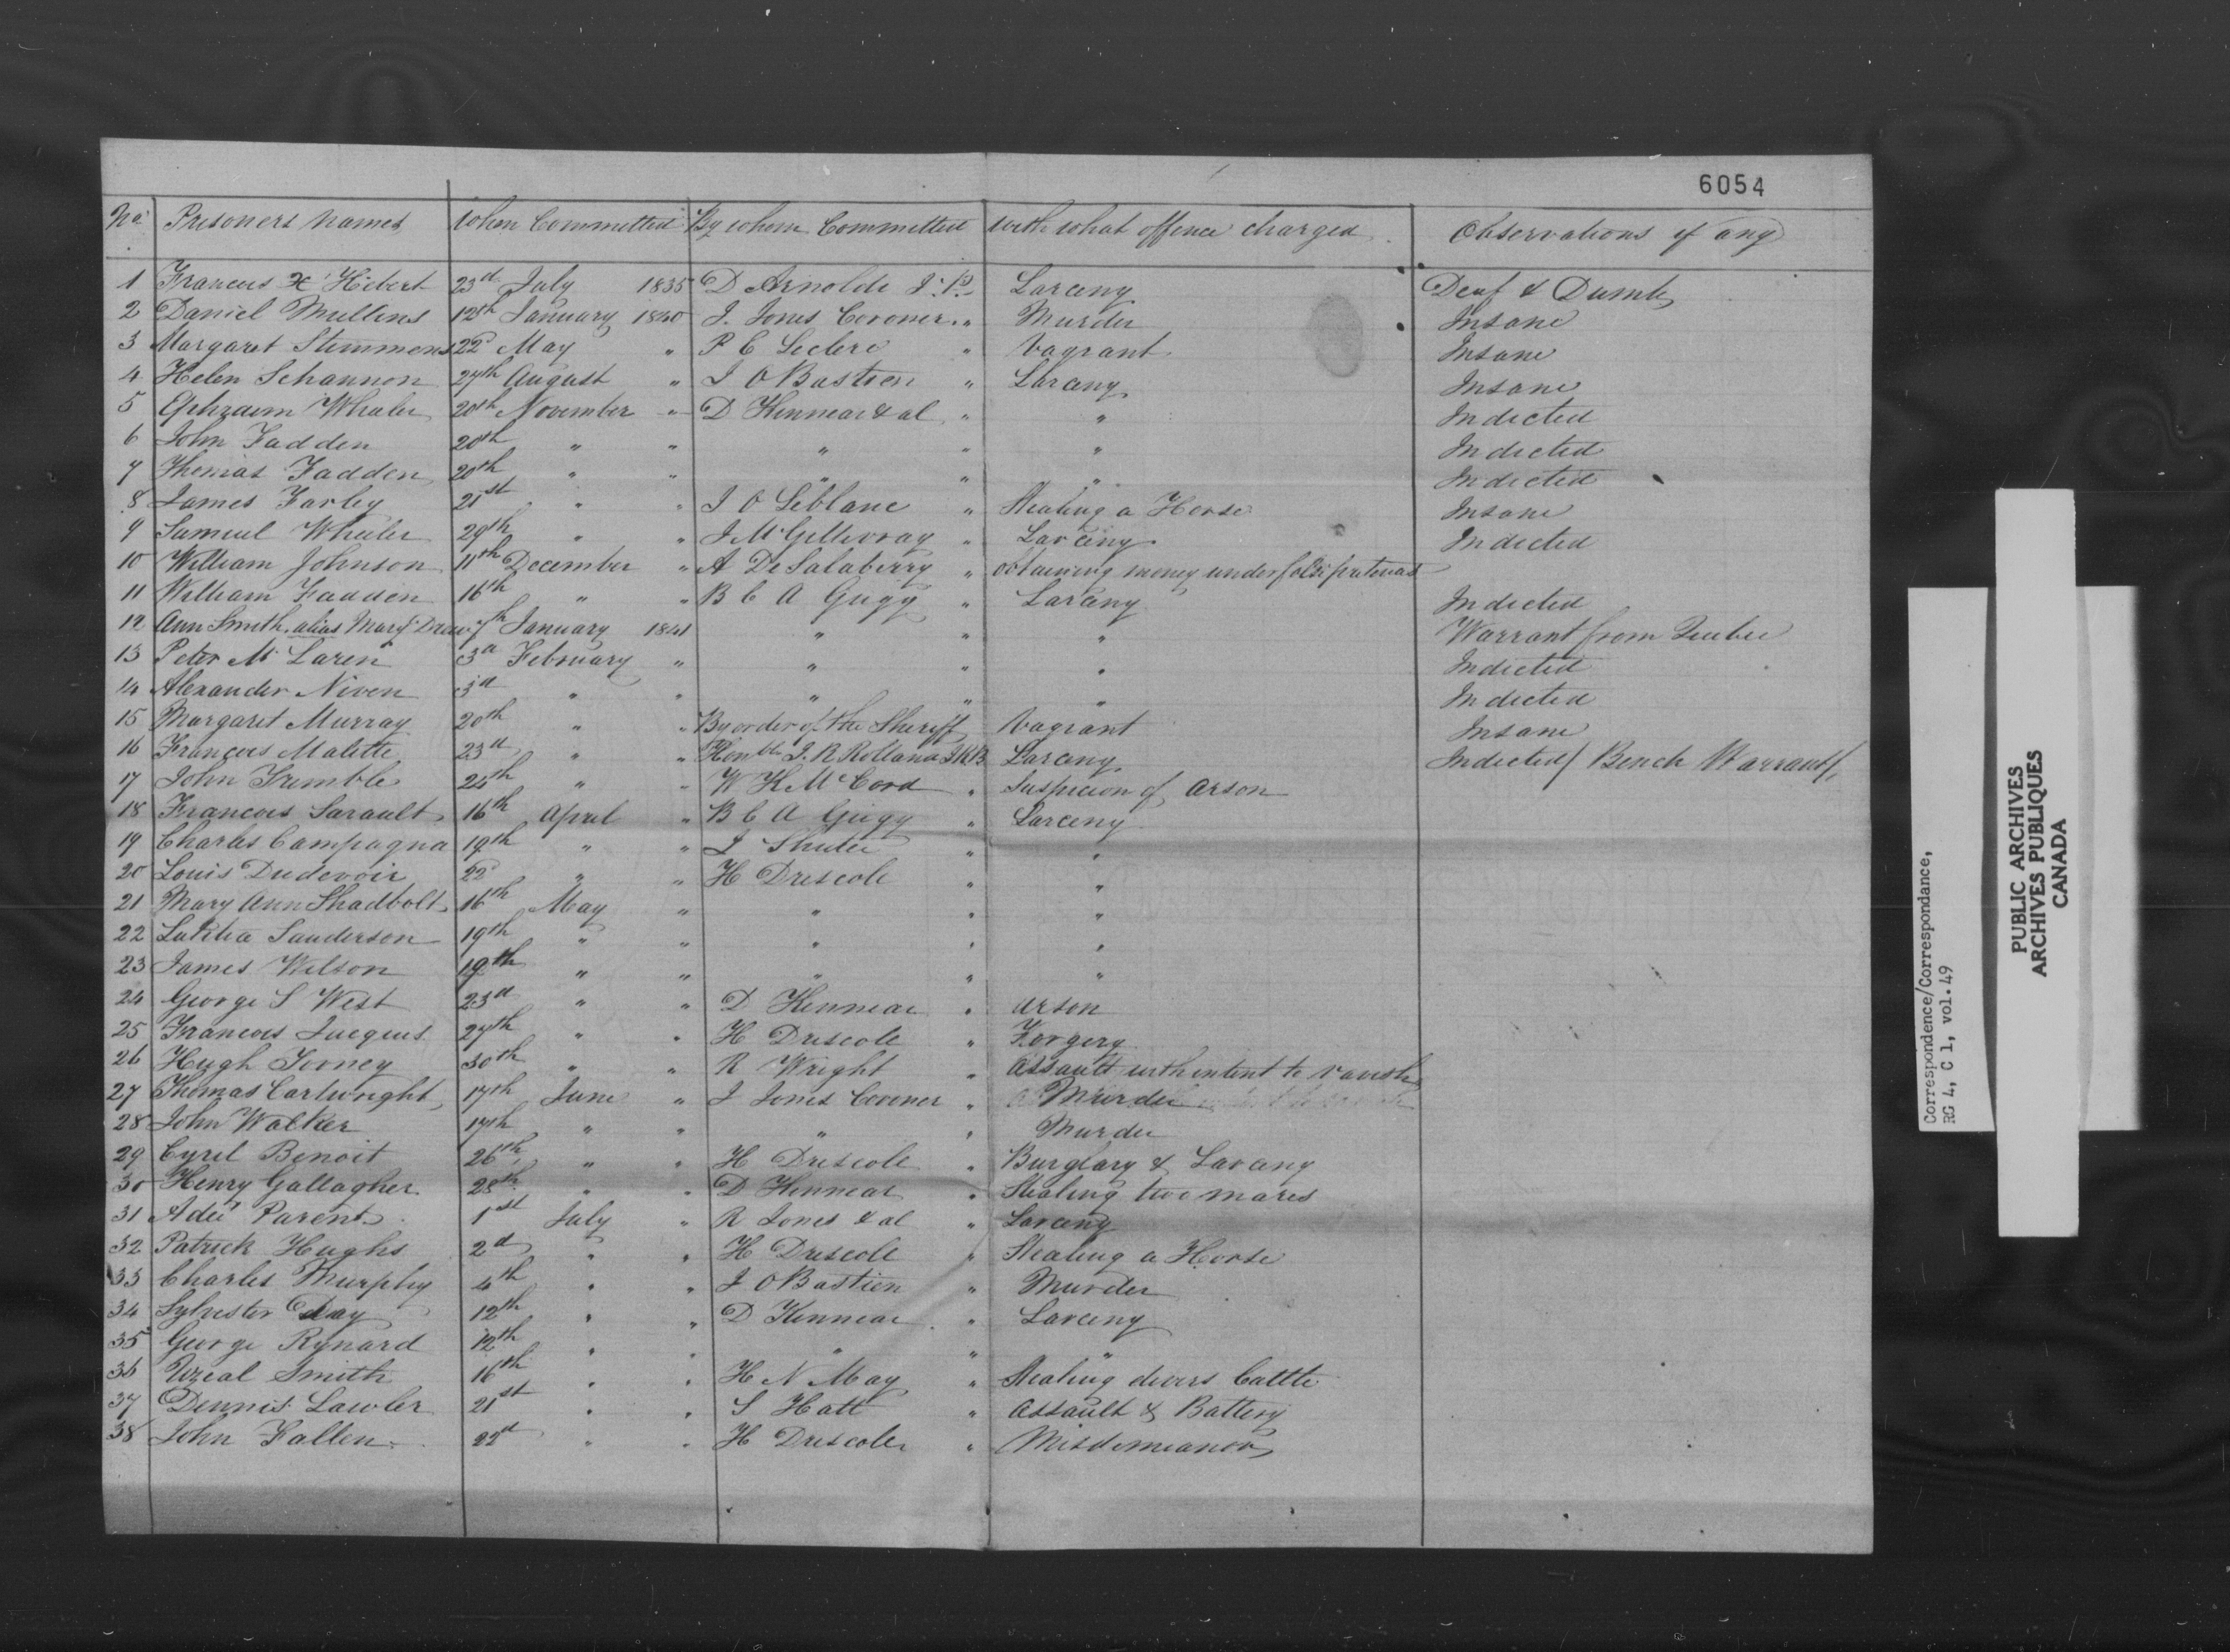 6054
No. Prisoners Names When Committed By whom Committed with what offence charged Observations if any
1 Francois X Hébert 23d July 1835 D Arnoldi J.P. Larceny Deaf & Dumb
2 Daniel Mullins 12th January 1840 J. Jones Coroner " Murder Insane
3 Margaret Stimmens 22d May " P E Leclerc " Vagrant Insane
4 Helen Schannon 27th August " J O Bastien " Larceny Insane
5 Ephraim Whaler 20th November " D Kinnear & al " " Indicted
6 John Fadden 20th " " " " " Indicted
7 Thomas Fadden 20th " " " " " Indicted
8 James Farley 21st " " J O Leblanc " Stealing a Horse Insane
9 Samuel Whaler 29th " " J McGillivray " Larceny Indicted
10 William Johnson 11th December " A De Salaberry " obtaining money under false pretences
11 William Fadden 16th " " B C A Gugy " Larceny Indicted
12 Ann Smith alias Mary Drew 7th January 1841 " " " Warrant from Quebec
13 Peter Mc Laren 3d February " " " " Indicted
14 Alexander Niven 3d " " " " " Indicted
15 Margaret Murray 20th " " By order of the Sheriff Vagrant Insane
16 François Malette 23d " " Honble J. R Rolland JKB Larceny Indicted / Bench Warrant /
17 John Trimble 24th " " W K McCord " Suspicion of Arson
18 Francois Sarault 16th April " B C A Gugy " Larceny
19 Charles Campagna 19th " " J Shuter " "
20 Louis Dudevoir 22d " " H Driscoll " "
21 Mary Ann Shadbolt 16th May " " " "
22 Latitia Sanderson 19th " " " " "
23 James Wilson 19th " " " " "
24 George S West 23d " " D Kinnear " Arson
25 Francois Jacques 27th " " H Driscoll " Forgery
26 Hugh Torney 30th " " R Wright " Assault with intent to ravish
27 Thomas Cartwright 17th June " J Jones Coroner " Murder
28 John Walker 17th " " " " Murder
29 Cyril Benoit 26th " " H Driscoll " Burglary & Larceny
30 Henry Gallagher 28th " " D Kinnear " Stealing two mares
31 Adée Parent 1st July " R Jones & al " Larceny
32 Patrick Hughs 2d " " H Driscoll " Stealing a Horse
33 Charles Murphy 4th " " J O Bastien " Murder
34 Sylvester Day 12th " " D Kinnear " Larceny
35 George Rynard 12th " " " " "
36 Uzeal Smith 16th " " H N May " Stealing divers Cattle
37 Dennis Lawler 21st " " S Hatt " Assault & Battery
38 John Fallen 22d " " H Driscoll " Misdemeanor
Correspondence/Correspondance,
RG 4, C 1, vol. 49
PUBLIC ARCHIVES
ARCHIVES PUBLIQUES
CANADA